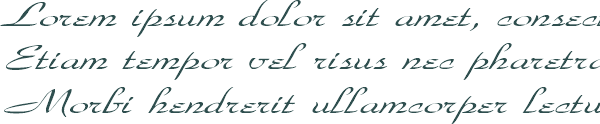 Lorem ipsum dolor sit amet, consec
Etiam tempor vel risus nec pharetra
Morbi hendrerit ullamcorper lectu